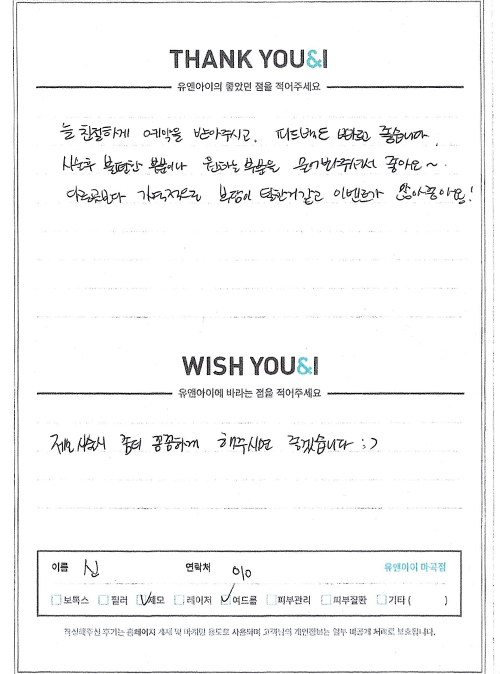 THANK YOU&I
유앤아이의 좋았던 점을 적어주세요
늘 친절하게 예약을 받아주시고, 피드백도 빠르고 좋습니다.
시술후 불편한 부분이나 원하는 부분을 물어봐주셔서 좋아요~
다른곳보다 가격적으로 부담이 덜한거같고 이벤트가 많아좋아요!
WISH YOU&I
유앤아이에 바라는 점을 적어주세요
제모 시술시 좀더 꼼꼼하게 해주시면 좋겠습니다 :)
이름 신 연락처 010 유앤아이 마곡점
보톡스 필러 제모 레이저 여드름 피부관리 피부질환 기타 ( )
작성해주신 후기는 홈페이지 게재 및 마케팅 용도로 사용되며 고객님의 개인정보는 일부 비공개 처리로 보호됩니다.